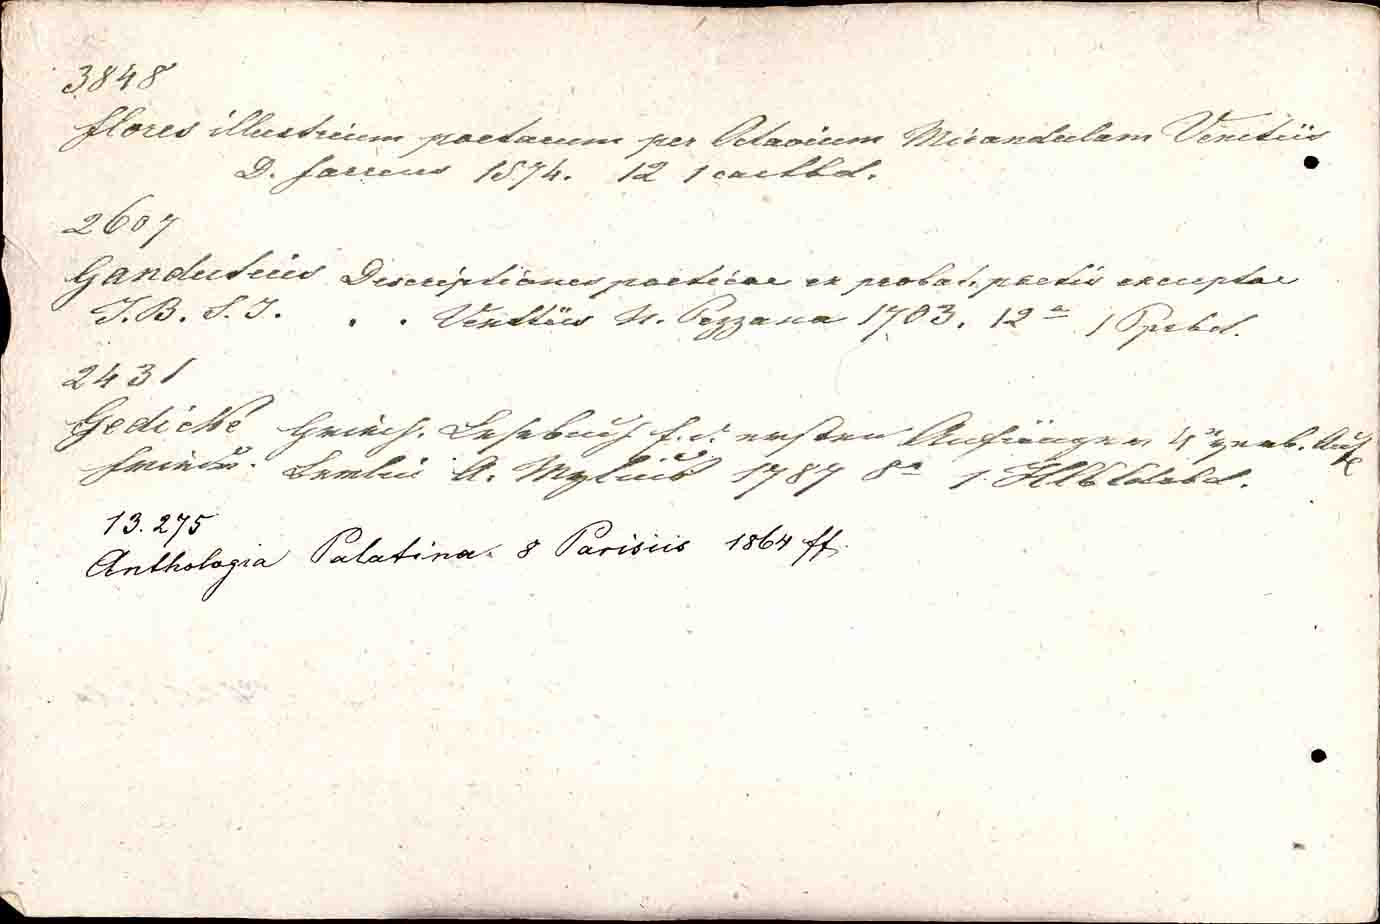 3848
Flores illustrium poetarum per Octavium Mirandulam Venetiis
D. Farreus 1574. 12 1 cartbd.
2607
Gandutius Descriptiones poeticae ex probat. poetis excerptae
J. B. S. J. . . Venetiis N. Pezzana 1703. 12° 1 Ppbd.
2431
Gedicke Griech. Lesebuch f. d. ersten Anfänger 4e verb. Aufl
Friedr. Berlin A. Mylius 1787 8° 1. Hlbldrbd.
13.275
Anthologia Palatina. 8 Parisiis 1864 ff.